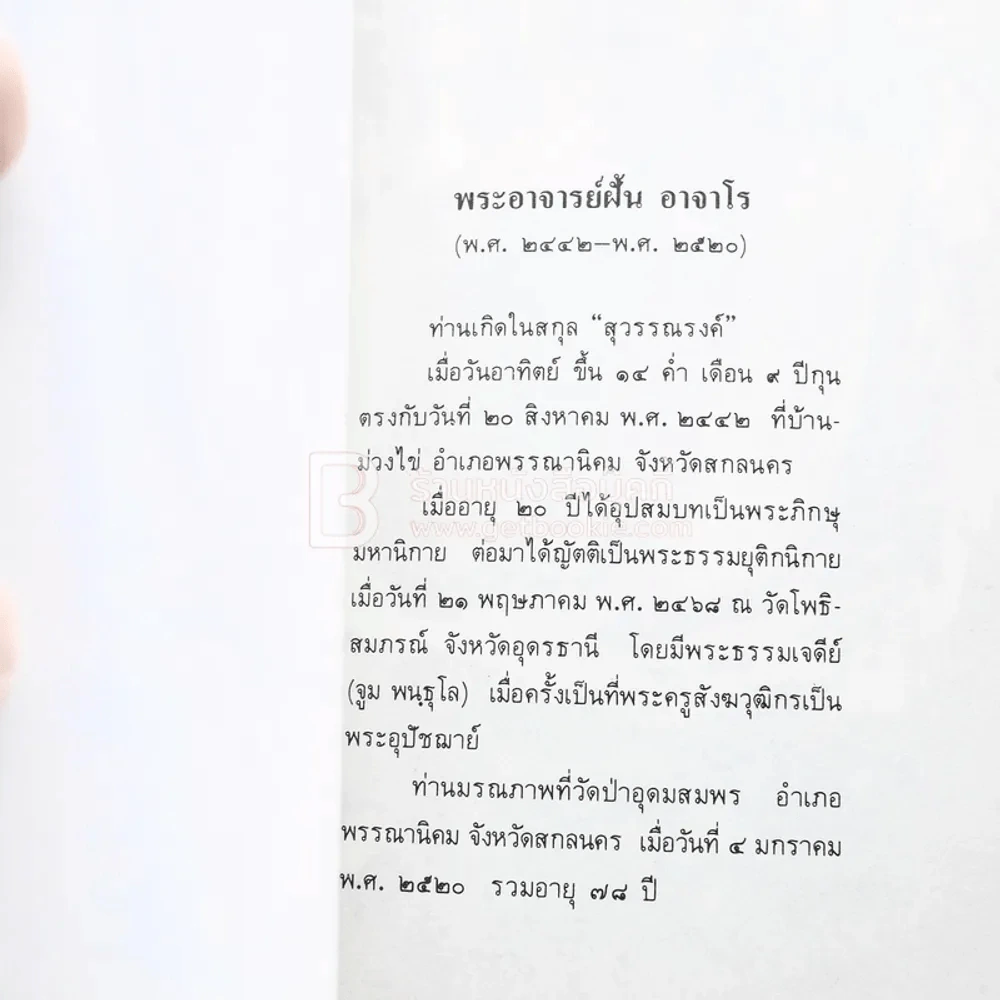 พระอาจารย์ฝั้น อาจาโร
(พ.ศ. ๒๔๔๒–พ.ศ. ๒๕๒๐)
ท่านเกิดในสกุล “สุวรรณรงค์”
เมื่อวันอาทิตย์ ขึ้น ๑๔ ค่ำ เดือน ๙ ปีกุน
ตรงกับวันที่ ๒๐ สิงหาคม พ.ศ. ๒๔๔๒ ที่บ้าน-
ม่วงไข่ อำเภอพรรณานิคม จังหวัดสกลนคร
ร้านหนังสือบุ๊คกี้
www.getbookie.com
เมื่ออายุ ๒๐ ปีได้อุปสมบทเป็นพระภิกษุ
มหานิกาย ต่อมาได้ญัตติเป็นพระธรรมยุติกนิกาย
เมื่อวันที่ ๒๑ พฤษภาคม พ.ศ. ๒๔๖๘ ณ วัดโพธิ-
สมภรณ์ จังหวัดอุดรธานี โดยมีพระธรรมเจดีย์
(จูม พนฺธุโล) เมื่อครั้งเป็นที่พระครูสังฆวุฒิกรเป็น
พระอุปัชฌาย์
ท่านมรณภาพที่วัดป่าอุดมสมพร อำเภอ
พรรณานิคม จังหวัดสกลนคร เมื่อวันที่ ๔ มกราคม
พ.ศ. ๒๕๒๐ รวมอายุ ๗๘ ปี